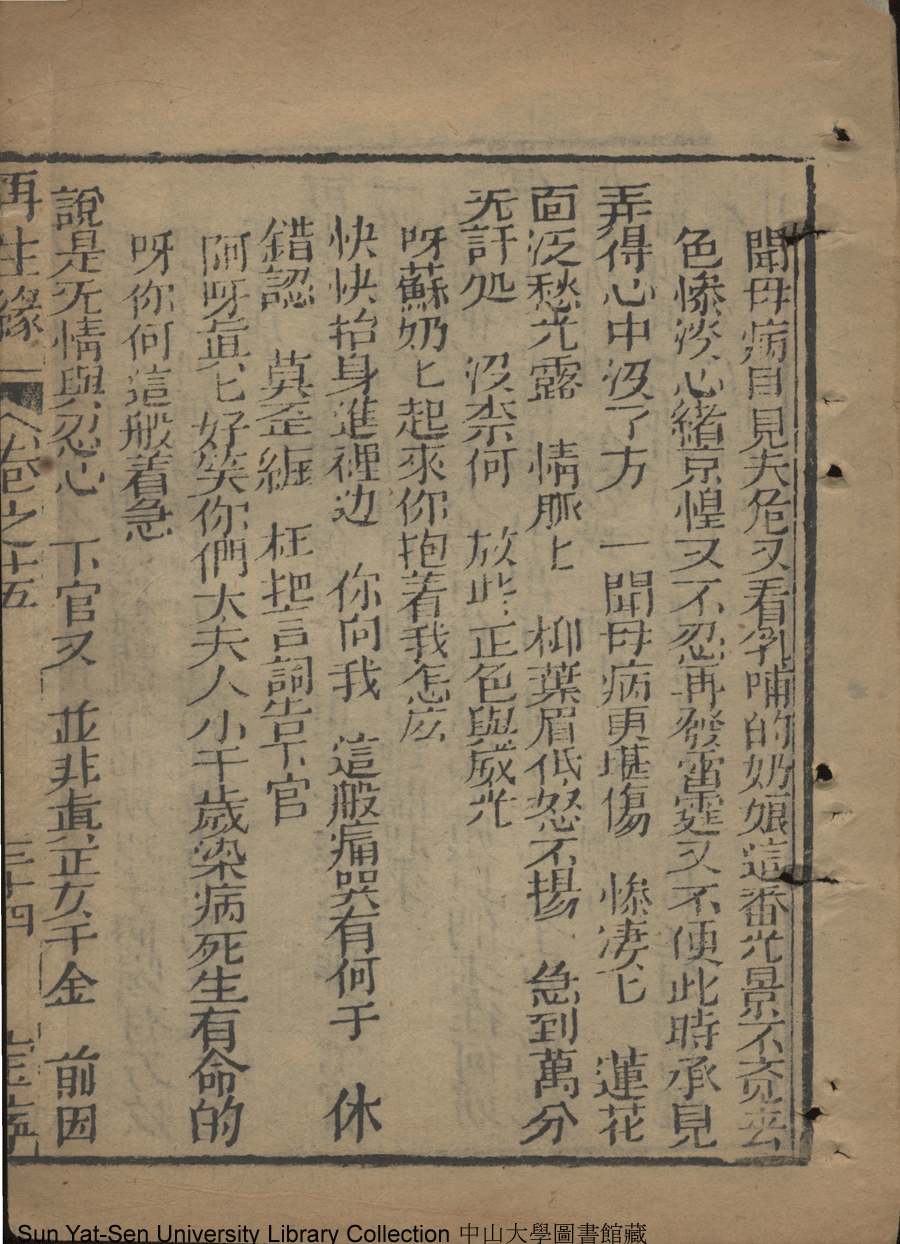 聞母病目見夫危又看乳哺的奶娘這番光景不覔玄
色慘淡心緒京惶又不忍再發雷霆又不便此時承見
弄得心中沒了方　一聞母病更堪傷　慘凄匕　蓮花
面泛愁光露　情脈匕　柳葉眉低怒不揚　急到萬分
无計処　沒柰何　放些正色與威光
呀蘇奶匕起來你抱着我怎庅
快快抬身進裡边　你向我　這般痛哭有何于　休
錯認　莫歪纏　枉把言詞告下官
阿呀眞匕好笑你們太夫人小千歲染病死生有命的
呀你何這般着急
說是旡情與忍心　下官又　並非眞正女千金　前因
再生緣　卷之十五　三十四
Sun Yat-Sen University Library Collection 中山大學圖書館藏